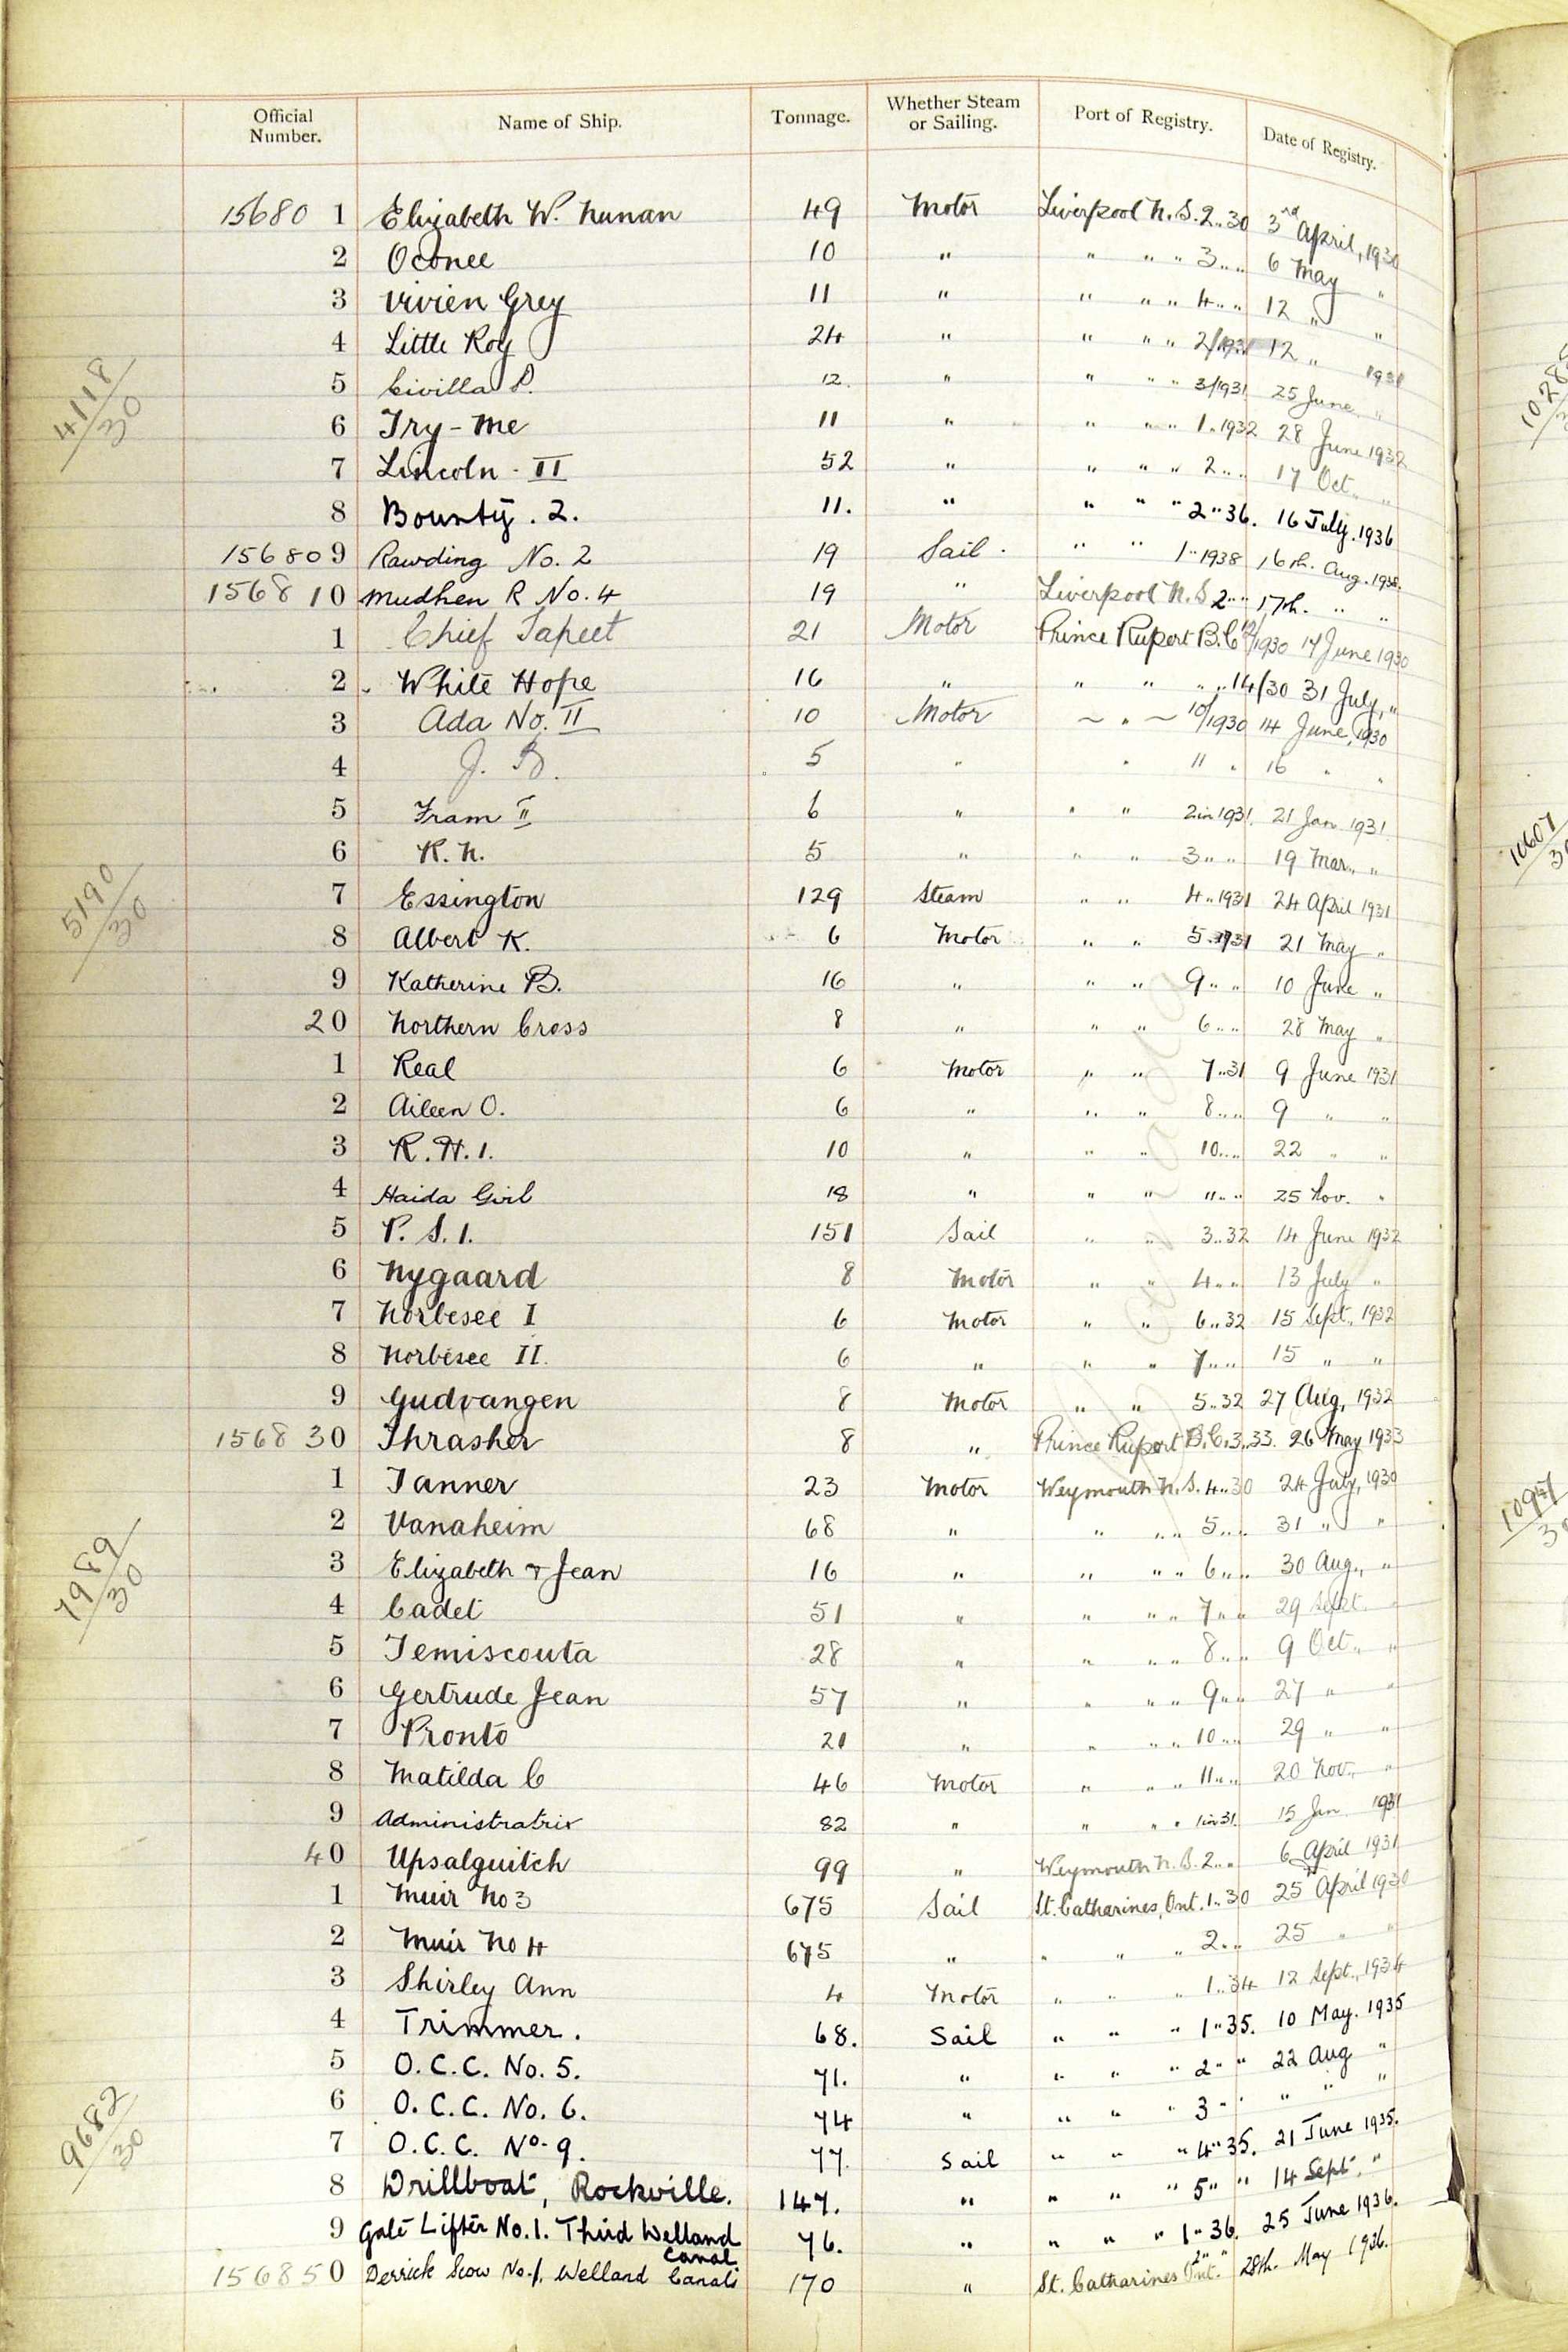 Official Number. Name of Ship. Tonnage. Whether Steam or Sailing. Port of Registry. Date of Registry.
15680 1 Elizabeth W. Nunan 49 Motor Liverpool N.S. 2 „ 30 3rd April, 1930
2 Oconee 10 " " " " 3 „ „ 6 May "
3 Vivien Grey 11 " " " " 4 „ „ 12 " "
4 Little Roy 24 " " " " 2/1931 12 " 1931
5 Civilla P. 12. " " " " 3/1931 25 June "
6 Try-Me 11 " " " " 1 „ 1932 28 June 1932
7 Lincoln - II 52 " " " " 2 „ „ 17 Oct. "
8 Bounty . 2. 11. " " " " 2 „ 36. 16 July. 1936
156809 Rawding No. 2 19 Sail . " " 1 „ 1938 16th. Aug. 1938.
156810 Mudhen R No. 4 19 " Liverpool N.S 2 „ „ 17th. " "
1 Chief Tapeet 21 Motor Prince Rupert B.C 12/1930 17 June 1930
2 White Hope 16 " " " " 14/30 31 July, "
3 Ada No. II 10 Motor ~ " ~ 10/1930 14 June, 1930
4 J. B. 5 " " 11 " 16 " "
5 Fram II 6 " " " 2 in 1931. 21 Jan 1931
6 R. N. 5 " " " 3 „ „ 19 Mar. "
7 Essington 129 Steam " " 4 „ 1931 24 April 1931
8 Albert K. 6 Motor " " 5 „ 1931 21 May "
9 Katherine B. 16 " " " 9 „ „ 10 June "
20 Northern Cross 8 " " " 6 „ „ 28 May "
1 Real 6 Motor " " 7 „ 31 9 June 1931
2 Aileen O. 6 " " " 8 „ „ 9 " "
3 R. H. 1. 10 " " " 10 „ „ 22 " "
4 Haida Girl 18 " " " 11 „ „ 25 Nov. "
5 P. S. 1. 151 Sail " " 3 „ 32 14 June 1932
6 Nygaard 8 Motor " " 4 „ „ 13 July "
7 Norbesee I 6 Motor " " 6 „ 32 15 Sept., 1932
8 Norbesee II. 6 " " " 7 „ „ 15 " "
9 Gudvangen 8 Motor " " 5 „ 32 27 Aug, 1932
156830 Thrasher 8 " Prince Rupert B.C. 3 „ 33. 26 May 1933
1 Tanner 23 Motor Weymouth N.S. 4 „ 30 24 July, 1930
2 Vanaheim 68 " " " " 5 „ „ 31 " "
3 Elizabeth & Jean 16 " " " " 6 „ „ 30 Aug., "
4 Cadet 51 " " " " 7 „ „ 29 Sept. "
5 Temiscouta 28 " " " " 8 „ „ 9 Oct., "
6 Gertrude Jean 57 " " " " 9 „ „ 27 " "
7 Pronto 21 " " " " 10 „ „ 29 " "
8 Matilda C 46 Motor " " " 11 „ „ 20 Nov., "
9 Administratrix 82 " " " " 1 in 31. 15 Jan 1931
40 Upsalquitch 99 " Weymouth N.S. 2 „ „ 6 April 1931
1 Muir No 3 675 Sail St. Catharines, Ont. 1 „ 30 25 April 1930
2 Muir No 4 675 " " " " 2 „ „ 25 " "
3 Shirley Ann 4 Motor " " " 1 „ 34 12 Sept., 1934
4 Trimmer . 68. Sail " " " 1 „ 35. 10 May. 1935
5 O.C.C. No. 5. 71. " " " " 2 „ „ 22 Aug "
6 O.C.C. No. 6. 74 " " " " 3 „ „ " " "
7 O.C.C. No. 9. 77. Sail " " " 4 „ 35. 21 June 1935.
8 Drillboat, Rockville. 147. " " " " 5 „ „ 14 Sept. "
9 Gate Lifter No. 1. Third Welland Canal 76. " " " " 1 „ 36. 25 June 1936.
156850 Derrick Scow No. 1. Welland Canals 170 " St. Catharines Ont. 2 „ „ 28th. May 1936.
4118/30
5190/30
7989/30
9682/30